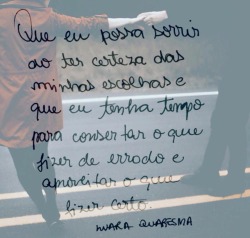 Que eu possa sorrir
ao ter certeza das
minhas escolhas e
que eu tenha tempo
para consertar o que
fizer de errodo e
aproveitar o que
fizer certo.
LUARA QUARESMA